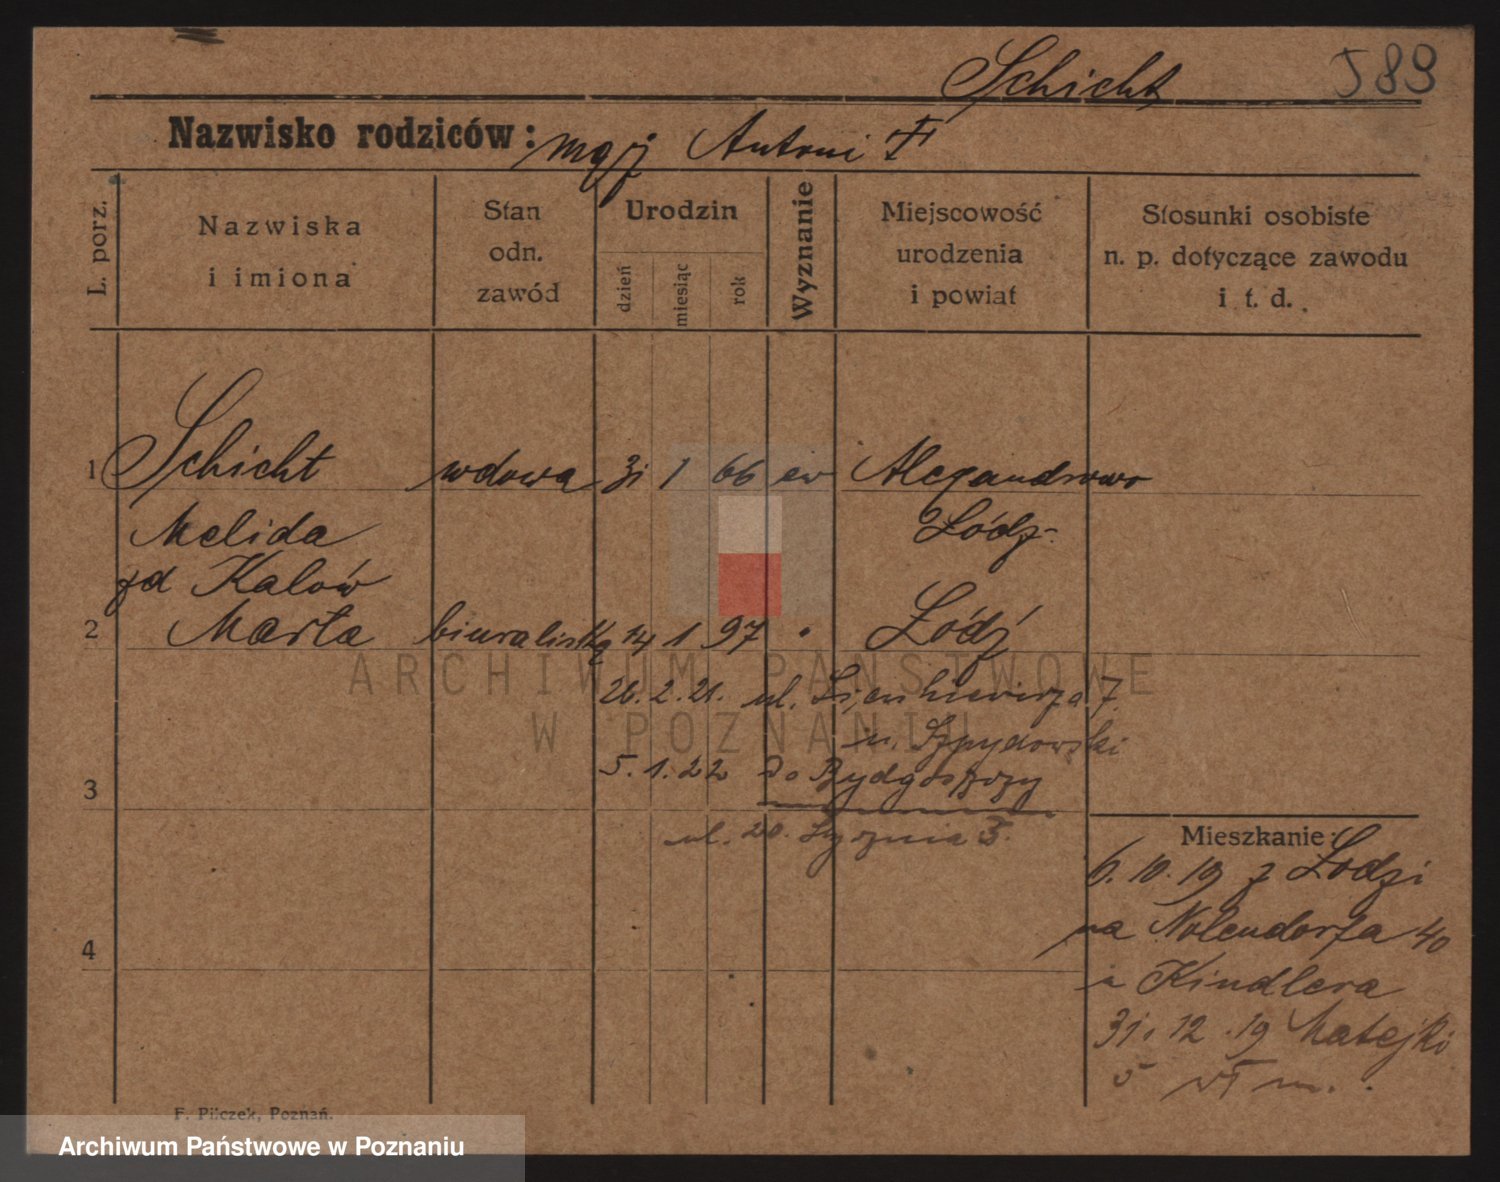 Schicht 589
Nazwisko rodziców: mąż Antoni
L. porz.
Nazwiska
i imiona
Stan
odn.
zawód
Urodzin
dzień
miesiąc
rok
Wyznanie
Miejscowość
urodzenia
i powiat
Stosunki osobiste
n. p. dotyczące zawodu
i t. d.
1 Schicht wdowa 31 1 66 ew Alexandrowo
Melida Łódz
zd Kalow
2 Marta biuralistka 14 1 97 " Łódź
ARCHIWUM PAŃSTWOWE
W POZNANIU
26.2.21. ul. Sienkiewicza 7.
u. Szpydowski
3 5.1.22 do Bydgoszczy
ul. 20. Stycznia 3.
Mieszkanie:
6.10.19 z Łodzi
na Nolendorfa 40
u Kindlera
4
31.12.19 Matejki
5 m.
F. Pilczek, Poznań.
Archiwum Państwowe w Poznaniu